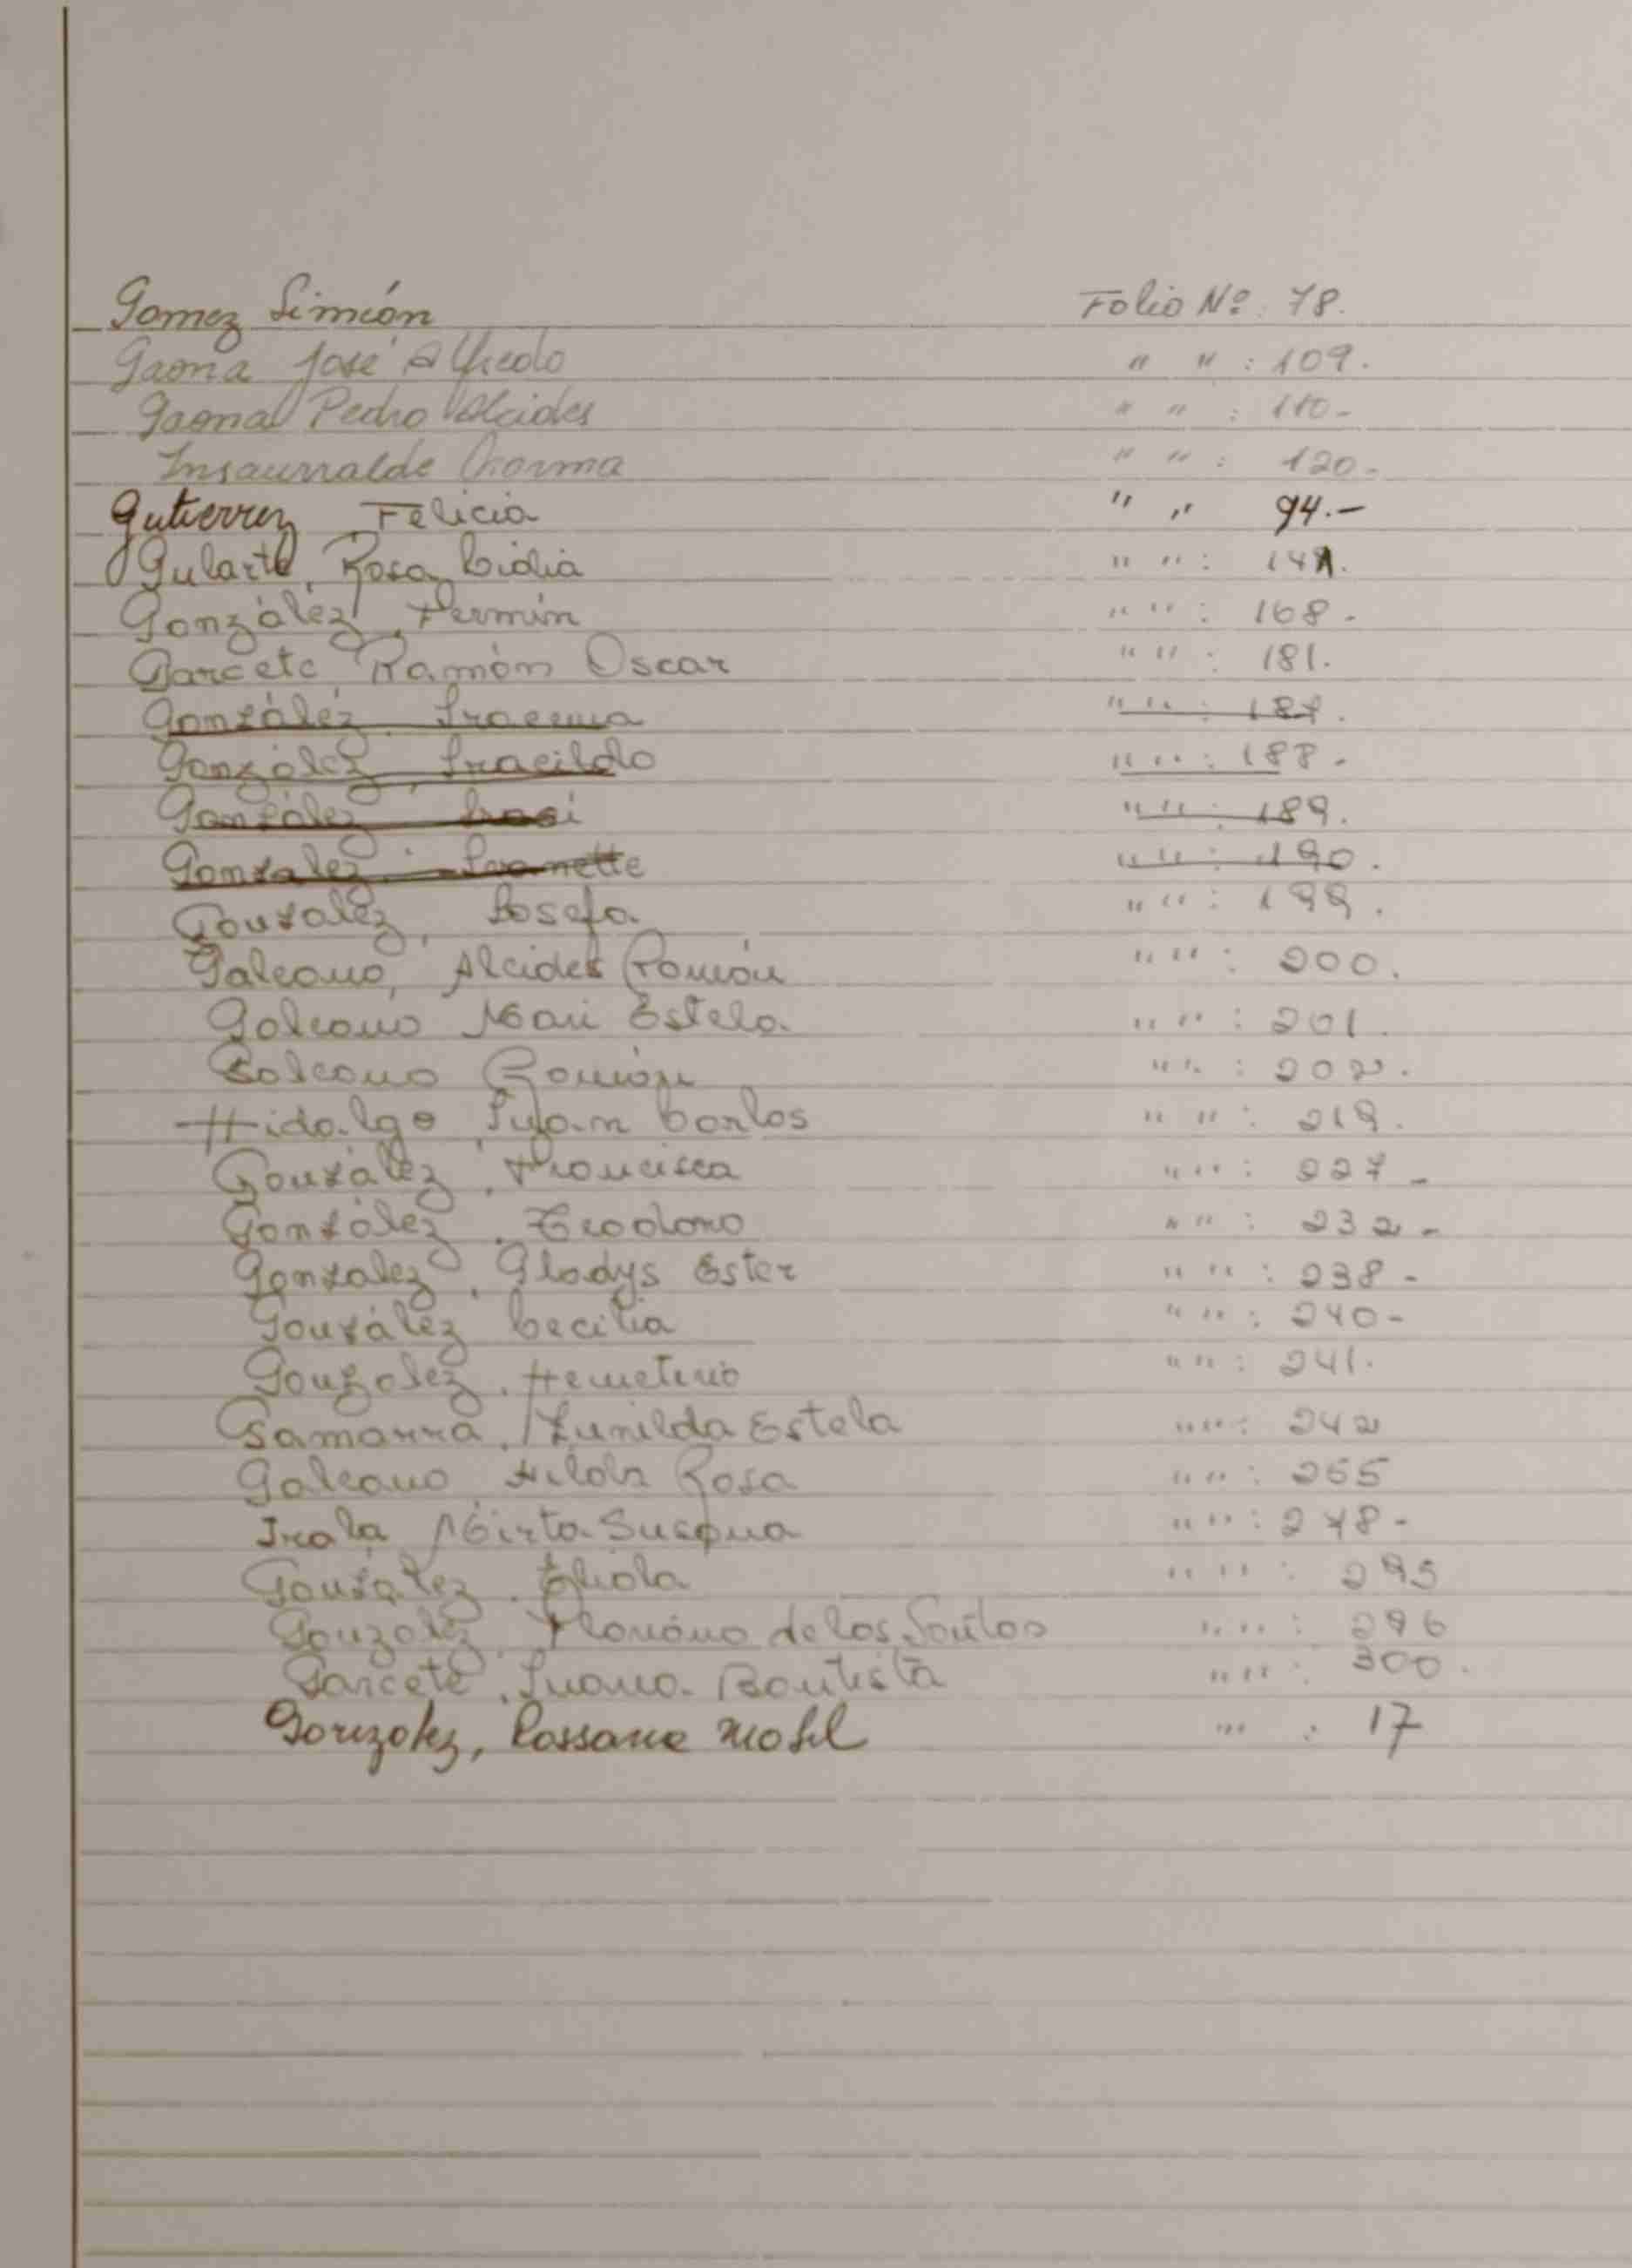 Gomez Simeón Folio Nº: 78.
Gaona José Alfredo " " : 109.
Gaona Pedro Alcides " " : 110-
Insaurralde Chorma " " : 120-
Gutierrez Felicia " " 94.-
Gularte, Rosa Lidia " " : 141.
González, Fermín " " : 168-
Garcete Ramón Oscar " " : 181.
González, Iracema " " : 187.
González, Iracildo " " : 188-
González Iraci " " : 189.
Gonzalez Ivanette " " : 190.
González, Josefa " " : 199.
Galeano, Alcides Ramón " " : 200.
Galeano Mari Estela " " : 201.
Galeano Ramón " " : 202.
Hidalgo, Juan Carlos " " : 219.
González, Francisca " " : 227-
González, Teodoro " " : 232-
Gonzalez, Gladys Ester " " : 238-
González Cecilia " " : 240-
Gonzalez, Hemeterio " " : 241.
Gamarra, Zunilda Estela " " : 242
Galeano Hilda Rosa " " : 265
Irala Mirta Susana " " : 278-
González, " " : 295
Gonzalez, Floriano de los Santos " " : 296
Garcete, Juana Bautista " " : 300.
Gonzalez, Rossana " : 17